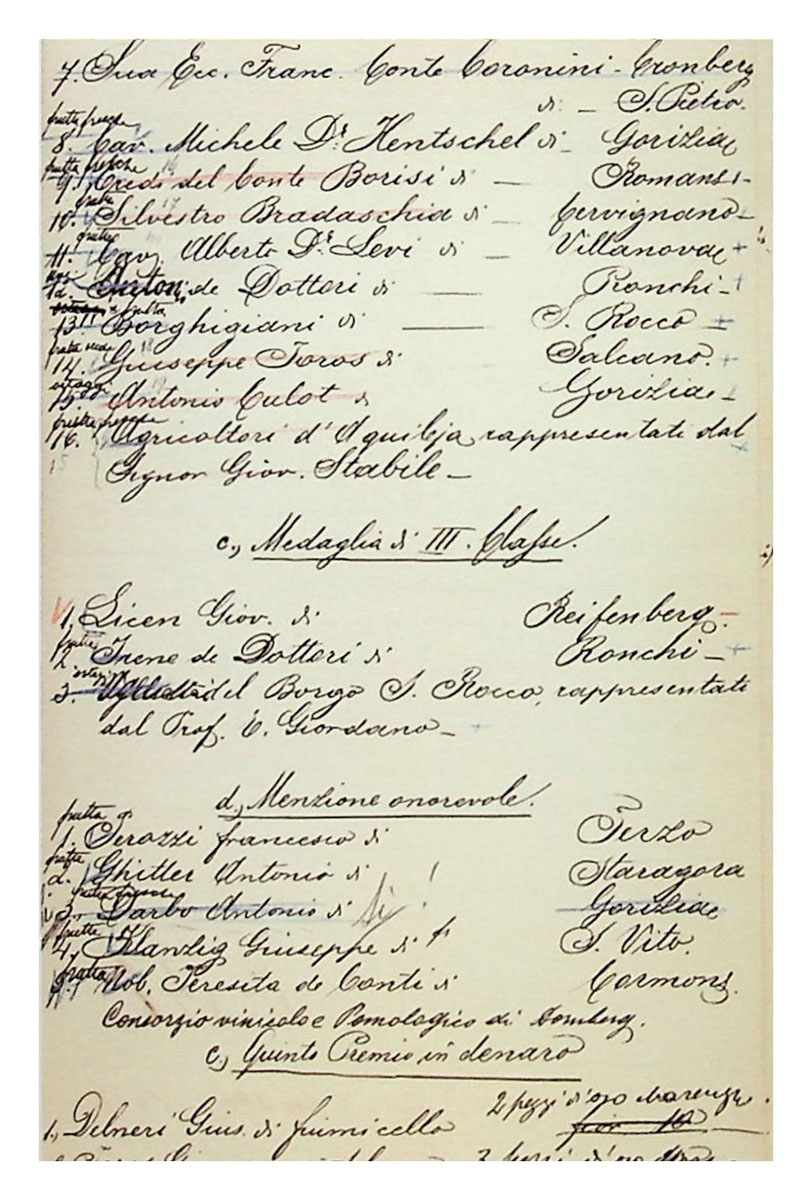 7. Sua Ecc. Franc. Conte Coronini-Cronberg
di - S. Pietro.
frutta fresche
8. Cav. Michele Dr. Hentschel di - Gorizia
frutta fresche
9. Eredi del Conte Borisi di - Romans -
frutta
10. Silvestro Bradaschia di - Cervignano -
frutta
11. Cav. Alberto Dr. Levi di - Villanova
12. de Dottori di - Ronchi -
frutta
13. Borghigiani di - S. Rocco -
frutta
14. Giuseppe Toros di Salcano.
ortaggi
15. Antonio Culot di Gorizia -
frutta fresche
16. Agricoltori d'Aquileja, rappresentati dal
Signor Giov. Stabile -
c., Medaglia di III. Classe.
1. Licen Giov. di Reifenberg. -
frutta
2. Irene de Dottori di Ronchi -
3. del Borgo S. Rocco, rappresentati
dal Prof. E. Giordano -
d., Menzione onorevole.
frutta
1. Terazzi francesco di Terzo
frutta
2. Ghitter Antonio di ! Staragora
3. Darbo Antonio di Gorizia
frutta
4. Klanzig Giuseppe di S. Vito.
frutta
5. Nob. Teresita de Conti di Cormons.
Consorzio vinicolo e Pomologico di Dornberg.
e., Quinto Premio in denaro
2 pezzi d'oro Marenghi.
1., Delneri Gius. di fiumicello fior 10
3 pezzi d'oro